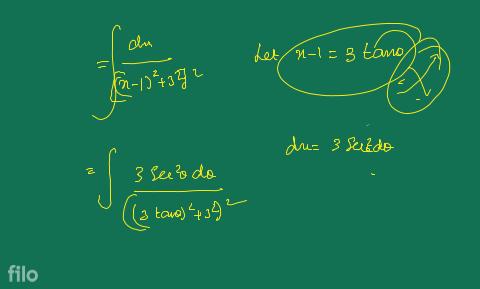 = ∫ dx / [(x-1)² + 3²]²
Let x-1 = 3 tanθ
dx = 3 Sec²θ dθ
= ∫ 3 Sec²θ dθ / ((3 tanθ)² + 3²)²
filo